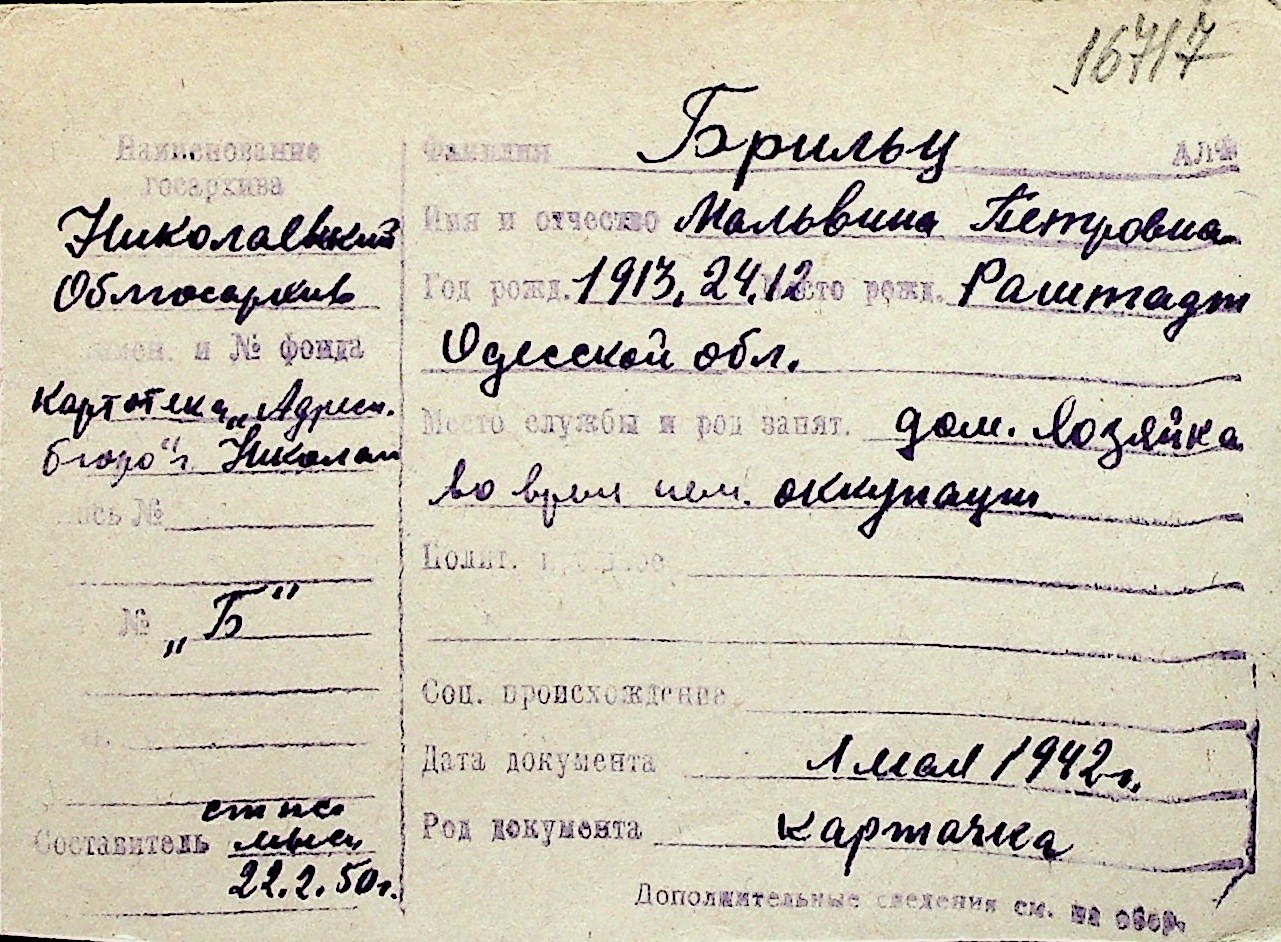 16717
Наименование
госархива
Николаевский
Облгосархив
и № фонда
Картотека „Адресн.
бюро" г. Николаев
№
№ „Б"
Составитель
22.2.50г.
Фамилия Брильц
Имя и отчество Мальвина Петровна
Год рожд. 1913, 24.12 Место рожд. Раштадт
Одесской обл.
Место службы и род занят. дом. хозяйка
во время нем. оккупации
Полит.
Соц. происхождение
Дата документа 1 мая 1942г.
Род документа карточка
Дополнительные сведения см. на обор.